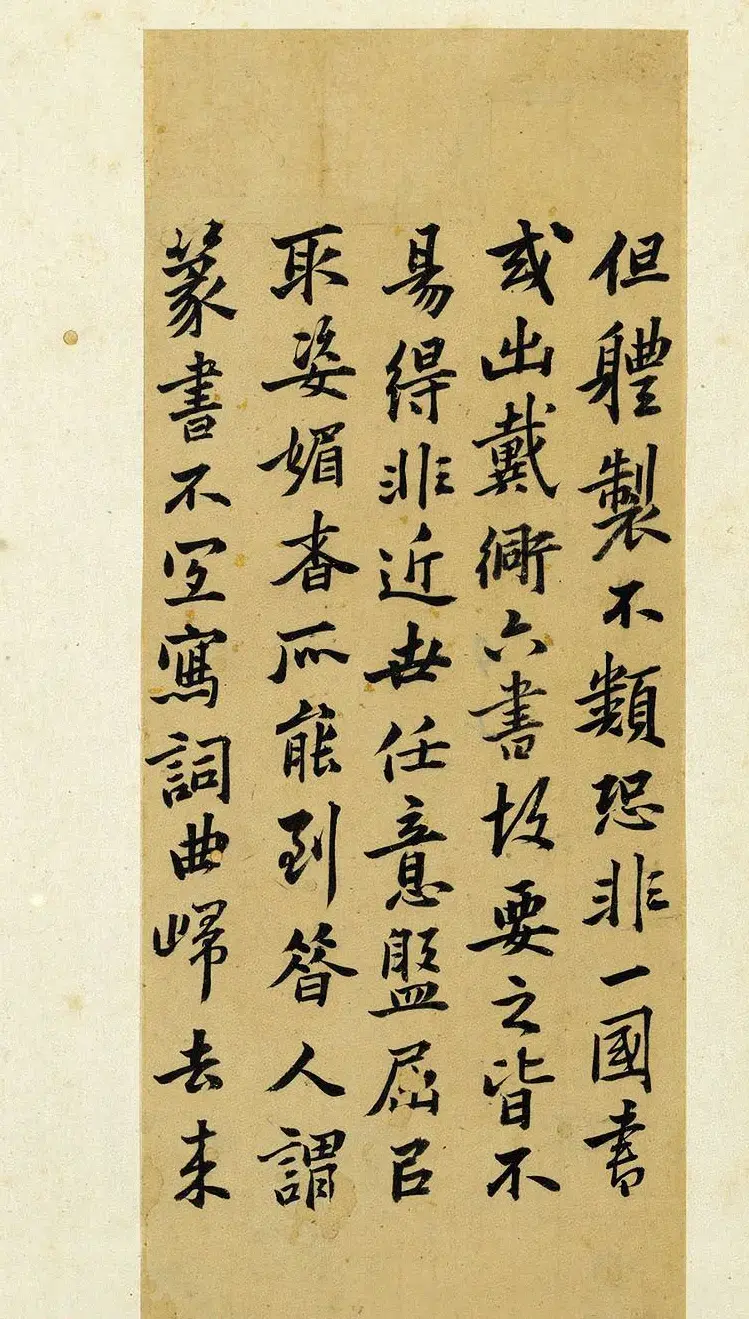 但體製不類恐非一國書
或出戴衕六書故要之皆不
易得非近世任意盤屈以
取姿媚者所能到昝人謂
篆書不宜寫詞曲歸去来